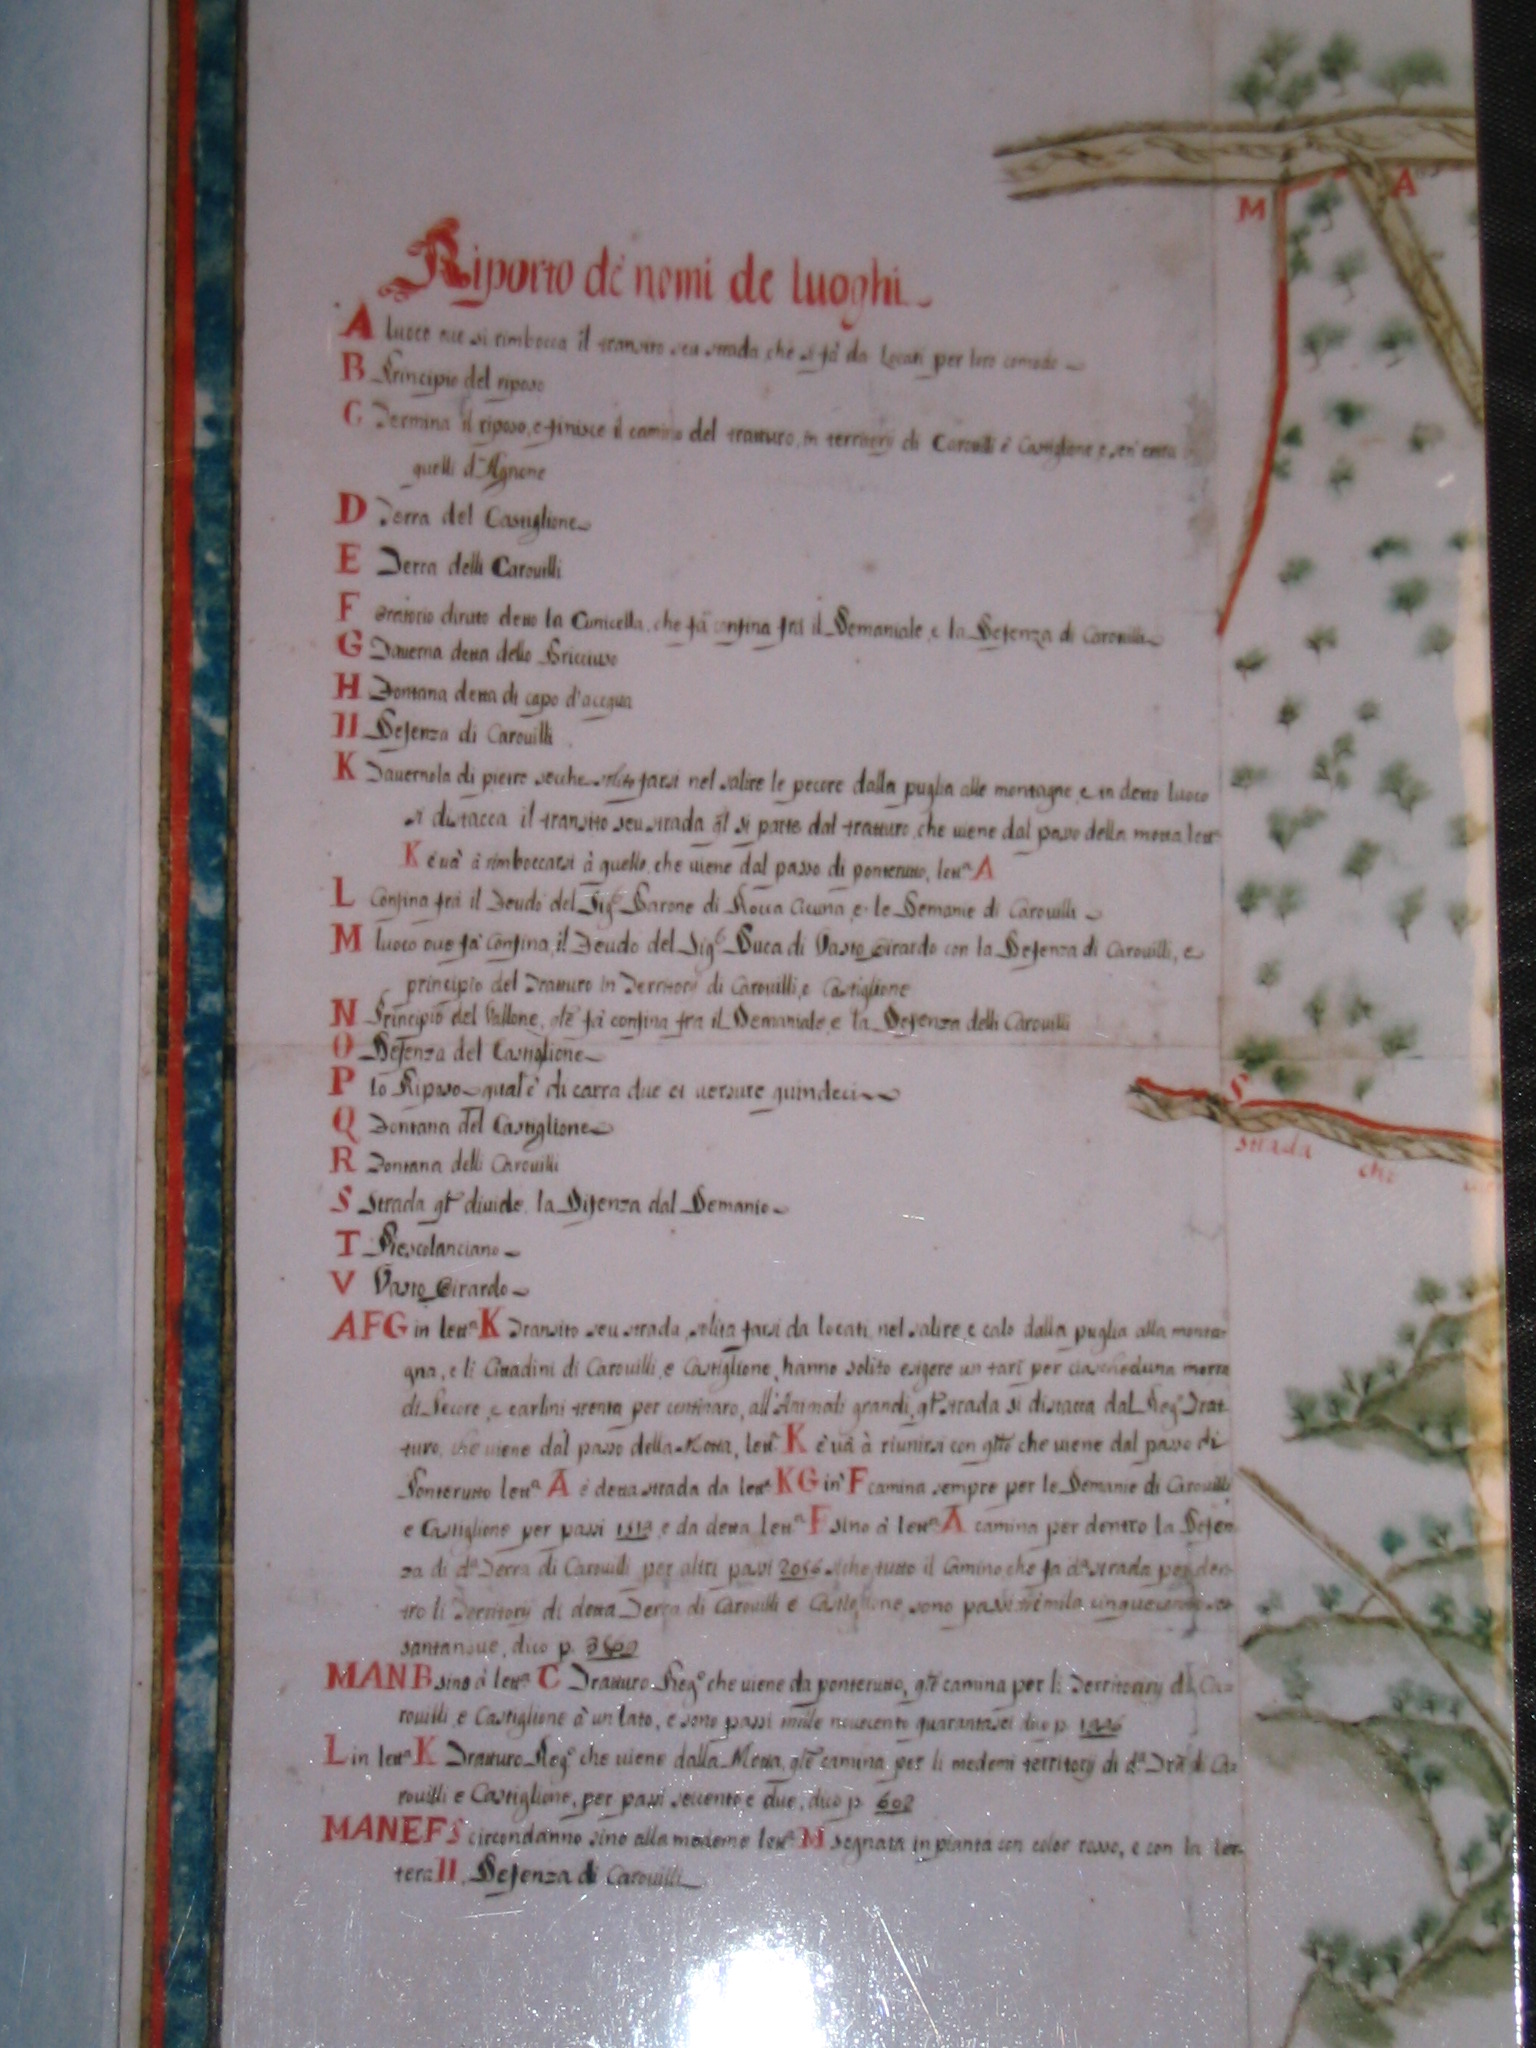 M A
Riporto dè nomi de luoghi
A luoco oue si rimbocca il transito seu strada, che si fà da Locati per loro comodo
B Principio del riposo
C Termina il riposo, e finisce il camino del tratturo, in territorij di Carouilli è Castiglione, e entra
quelli d'Agnone
D Terra del Castiglione
E Terra delli Carouilli
F oratorio diruto detto la Cunicella, che fà confina frà il Demaniale, e la Defenza di Carouilli
G Tauerna detta dello Bricciuso
H Fontana detta di capo d'accqua
II Defenza di Carouilli
K Tauernola di pietre secche solito farsi nel salire le pecore dalla puglia alle montagne, e in detto luoco
si distacca il transito seu strada ql si parte dal tratturo, che uiene dal passo della motta lettᵃ
K è uà à rimboccarsi à quello, che uiene dal passo di ponterutto, lettᵃ A
L Confina frà il Feudo del Sigʳ Barone di Rocca Cicuta, e le Demanie di Carouilli
M luoco oue fà confina, il Feudo del Sigʳ Duca di Vasto Girardo con la Defenza di Carouilli, e
principio del Tratturo in Territorij di Carouilli, e Castiglione
N Principio del Vallone, qle fà confina fra il Demaniale, e la Defenza delli Carouilli
O Defenza del Castiglione
P lo Riposo qual'è di carra due et uersure quindeci
Q Fontana del Castiglione
R Fontana delli Carouilli
S Strada qle diuide la Difenza dal Demanio
T Pescolanciano
V Vasto Girardo
AFG in lettᵃ K Transito seu strada, solita farsi da locati, nel salire e calo dalla puglia alla monta-
gna, e li Cittadini di Carouilli, e Castiglione, hanno solito esigere un tarì per ciascheduna morra
di Pecore, e carlini trenta per centinaro, all'Animali grandi, ql strada si distacca dal Regº Trat-
turo, che uiene dal passo della Motta, lettᵃ K è uà à riunirsi con qllo che uiene dal passo di
Ponterutto lettᵃ A è detta strada da lettᵃ KG in F camina sempre per le Demanie di Carouilli
e Castiglione per passi 1513 e da detta lettᵃ F sino à lettᵃ A camina per dentro la Defen-
za di dᵃ Terra di Carouilli per altri passi 2056 siche tutto il camino che fa dᵃ strada per den-
tro li Territorij di detta Terra di Carouilli e Castiglione, sono passi tremila cinquecento ses-
santanoue, dico p. 3569
MANB sino à lettᵃ C Tratturo Regº che uiene da ponterutto, qle camina per li Territorij di Ca-
rouilli, e Castiglione à un lato, e sono passi mille nouecento quarantasei dico p. 1946
L in lettᵃ K Tratturo Regº che uiene dalla Motta, qle camina per li medemi territorij di dᵃ Trᵃ di Ca-
rouilli e Castiglione, per passi seicento e due, dico p. 602
MANEFS circondanno sino alla medeme lettᵃ M segnata in pianta con color rosso, e con la let-
tera II, Defenza di Carouilli
strada che